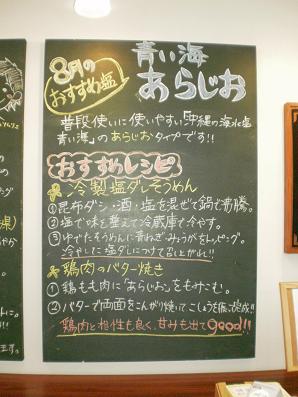 8月の
おすすめ塩
青い海
あらじお
普段使いに使いやすい「沖縄の海水塩
青い海」のあらじおタイプです!!
おすすめレシピ
冷製塩ダレそうめん
①昆布ダシ・酒・塩を混ぜて鍋で沸騰。
②塩で味を整えて冷蔵庫で冷やす。
③ゆでたそうめんに青ねぎ・みょうがをトッピング。
冷やした塩ダレにつけて召し上がれ!!
鶏肉のバター焼き
①鶏もも肉に「あらじお」をもみこむ。
②バターで両面をこんがり焼いてこしょうを振って完成!!
鶏肉と相性も良く、甘みも出てgood!!